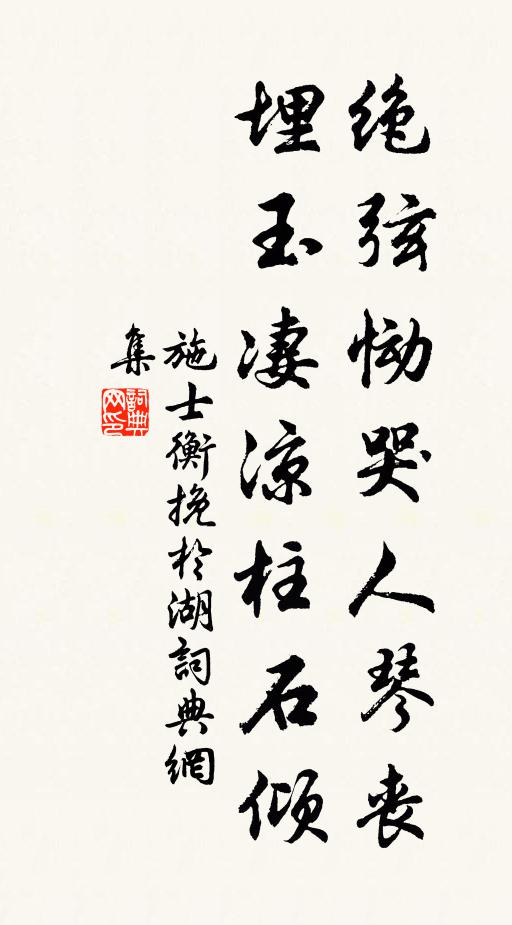 绝弦恸哭人琴丧
埋玉凄凉柱石倾
施士衡挽於湖詞典網
集
詞典网印